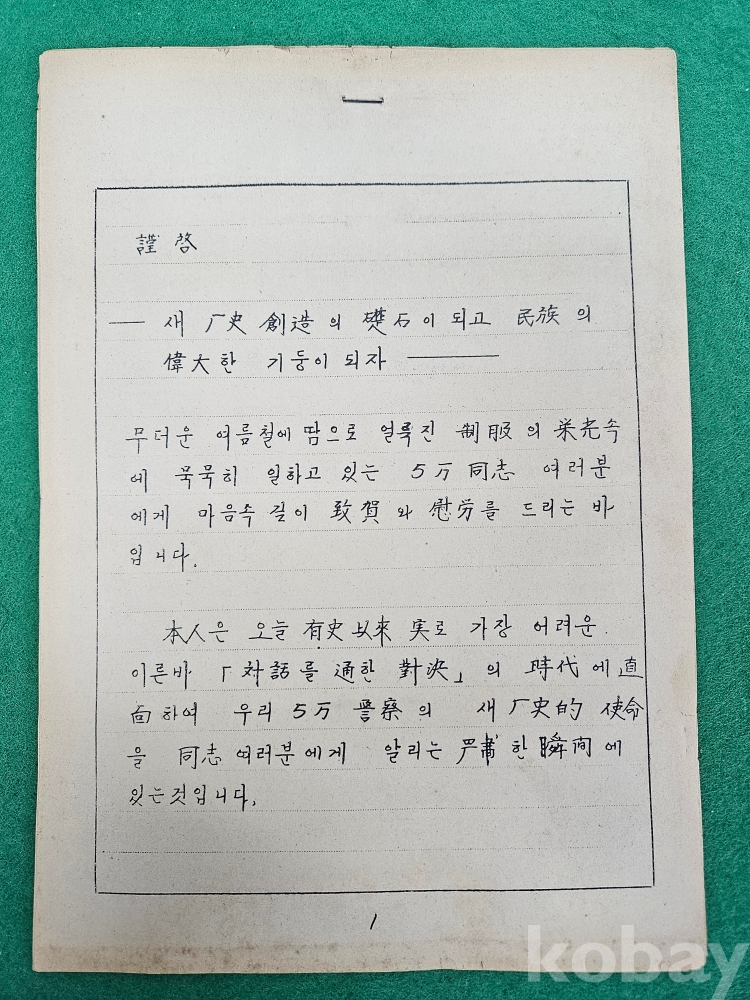 謹啓
── 새 厂史 創造의 礎石이 되고 民族의
偉大한 기둥이 되자 ────
무더운 여름철에 땀으로 얼룩진 制服의 栄光속
에 묵묵히 일하고 있는 5万 同志 여러분
에게 마음속 깊이 致賀와 慰労를 드리는 바
입니다.
本人은 오늘 有史以來 実로 가장 어려운
이른바 「対話를 通한 對決」의 時代에 直
面하여 우리 5万 警察의 새 厂史的 使命
을 同志 여러분에게 알리는 严肅한 瞬间에
있는것입니다.
1
kobay